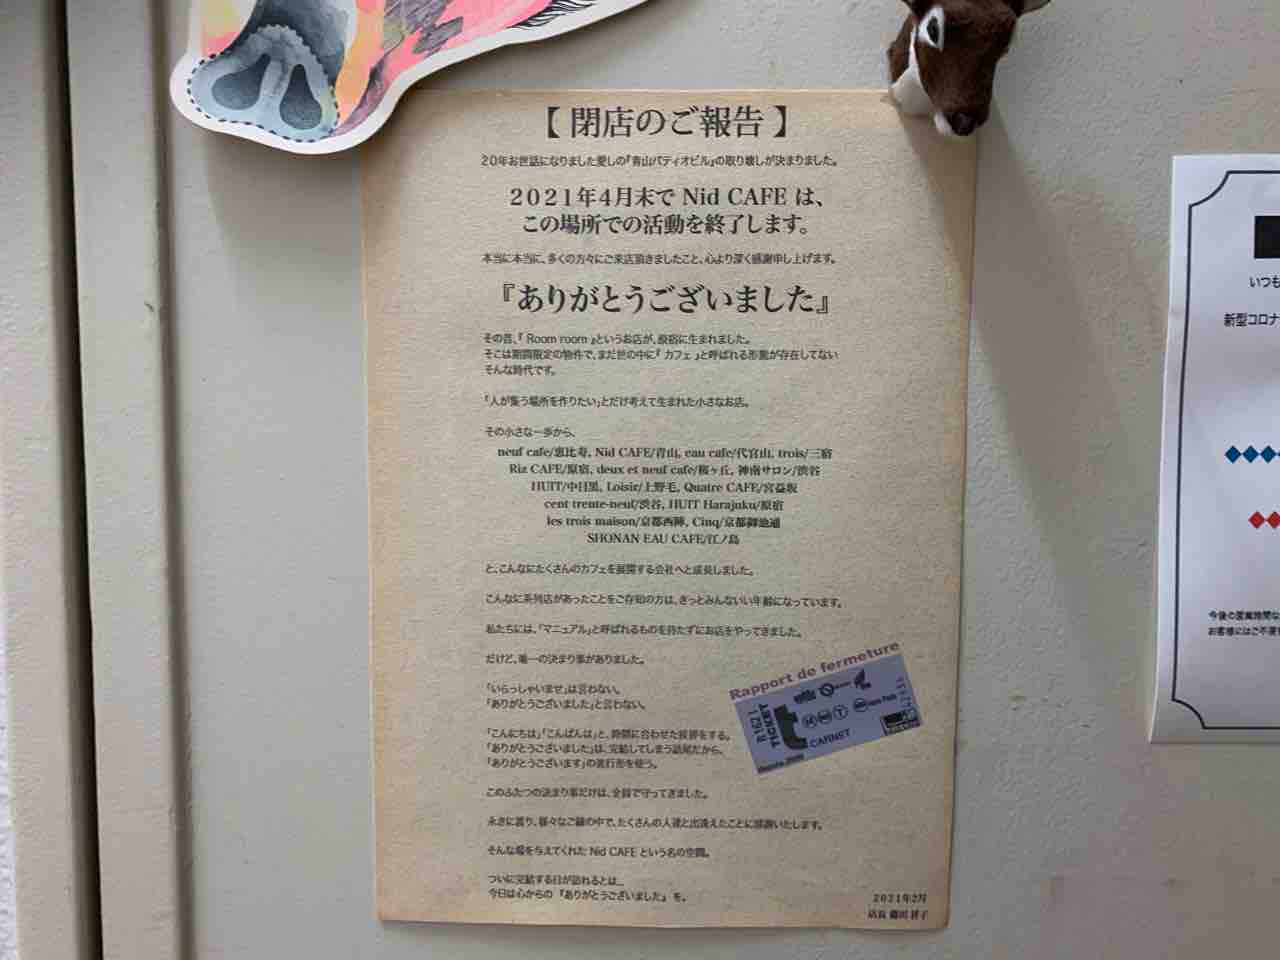 【閉店のご報告】
20年お世話になりました愛しの『青山パティオビル』の取り壊しが決まりました。
2021年4月末で Nid CAFE は、
この場所での活動を終了します。
本当に本当に、多くの方々にご来店頂きましたこと、心より深く感謝申し上げます。
『ありがとうございました』
その昔、『 Room room 』というお店が、原宿に生まれました。
そこは期間限定の物件で、まだ世の中に『 カフェ 』と呼ばれる形態が存在してない
そんな時代です。
「人が集う場所を作りたい」とだけ考えて生まれた小さなお店。
その小さな一歩から、
neuf cafe/恵比寿, Nid CAFE/青山, eau cafe/代官山, trois/三宿
Riz CAFE/原宿, deux et neuf cafe/桜ヶ丘, 神南サロン/渋谷
HUIT/中目黒, Loisir/上野毛, Quatre CAFE/宮益坂
cent trente-neuf/渋谷, HUIT Harajuku/原宿
les trois maison/京都西陣, Cinq/京都御池通
SHONAN EAU CAFE/江ノ島
と、こんなにたくさんのカフェを展開する会社へと成長しました。
こんなに系列店があったことをご存知の方は、きっとみんないい年齢になっています。
私たちには、「マニュアル」と呼ばれるものを持たずにお店をやってきました。
だけど、唯一の決まり事がありました。
「いらっしゃいませ」は言わない。
「ありがとうございました」と言わない。
「こんにちは」「こんばんは」と、時間に合わせた挨拶をする。
「ありがとうございました」は、完結してしまう語尾だから、
「ありがとうございます」の進行形を使う。
このふたつの決まり事だけは、全員で守ってきました。
永きに渡り、様々なご縁の中で、たくさんの人達と出逢えたことに感謝いたします。
そんな場を与えてくれた Nid CAFE という名の空間。
ついに完結する日が訪れるとは_
今日は心からの 『ありがとうございました』 を。
Rapport de fermeture
TICKET
CARNET
2021年2月
店長
いつも
新型コロナ
今後の営業時間な
お客様にはご不便